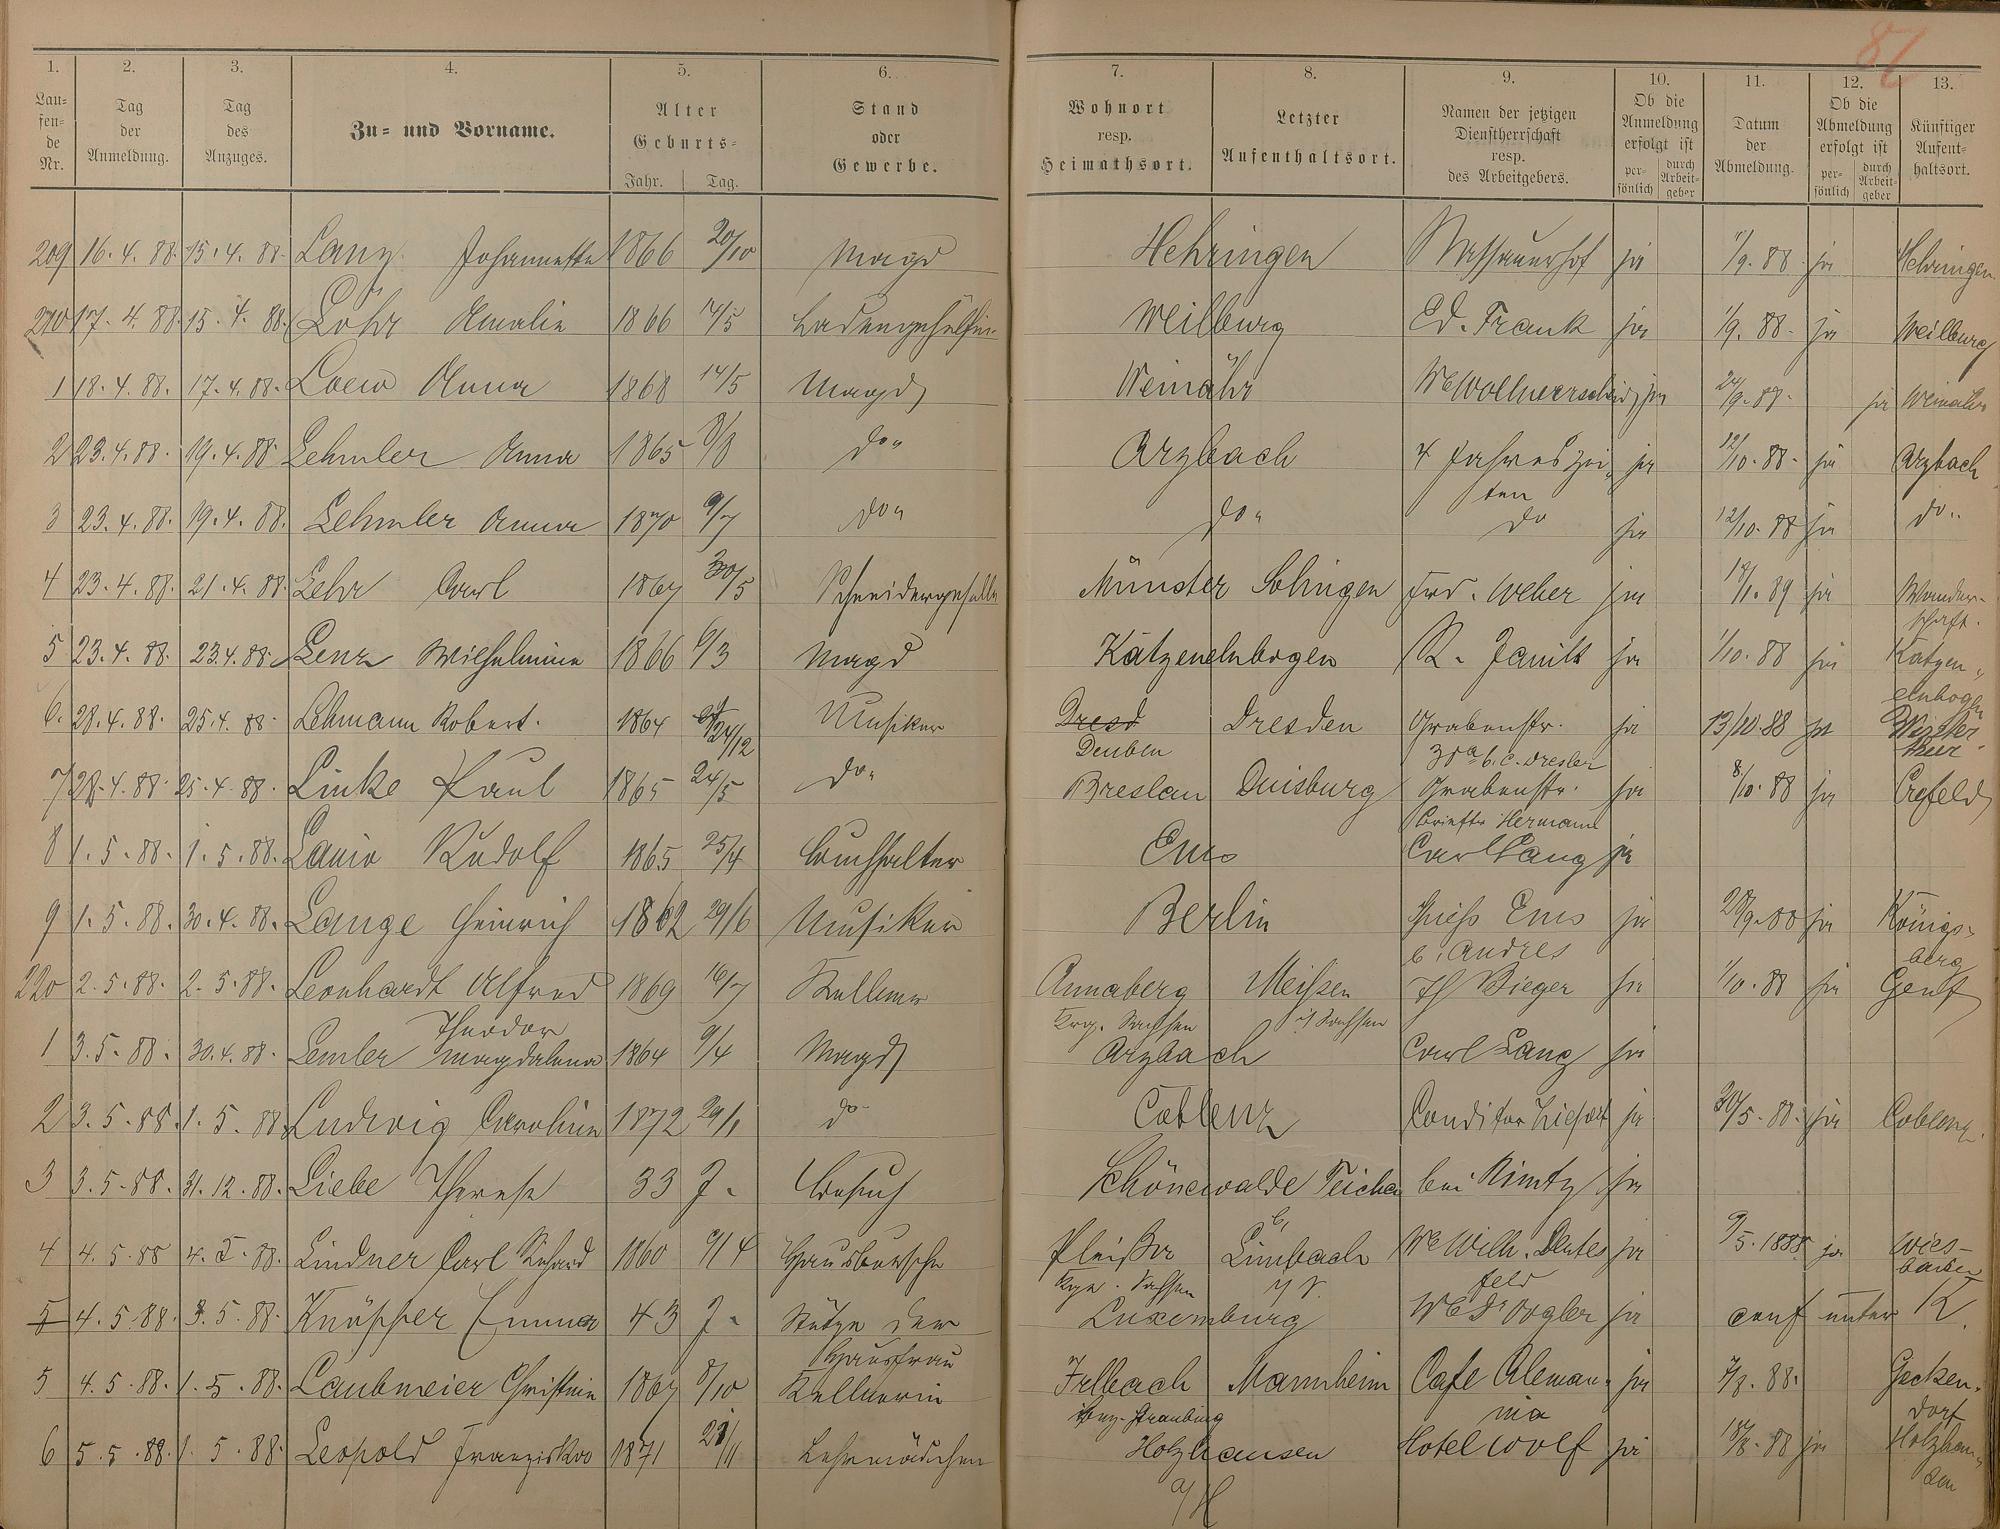 86
1. 2. 3. 4. 5. 6. 7. 8. 9. 10. 11. 12. 13.
Lau-fen-de Nr. Tag der Anmeldung. Tag des Anzuges. Zu- und Vorname. Alter Geburts- Jahr. Tag. Stand oder Gewerbe. Wohnort resp. Heimathsort. Letzter Aufenthaltsort. Namen der jetzigen Dienstherrschaft resp. des Arbeitgebers. Ob die Anmeldung erfolgt ist per-sönlich durch Arbeit-geber Datum der Abmeldung. Ob die Abmeldung erfolgt ist per-sönlich durch Arbeit-geber Künftiger Aufent-haltsort.
209 16.4.88. 15.4.88. Lanz Johannette 1866 20/10 Magd Hehringen Nassauerhof ja 1/9.88 ja Hehringen
210 17.4.88. 15.4.88. Löhr Amalie 1866 14/5 Ladengehülfin Weilburg Ed. Frank ja 1/9.88. ja Weilburg
1 18.4.88. 17.4.88. Loew Anna 1868 14/5 Magd Weinähr We ja 24/9.88. ja Weinähr
2 23.4.88. 19.4.88. Lehmler Anna 1865 8/8 do" Arzbach 4 Jahreszei- ja 12/10.88. ja Arzbach
ten
3 23.4.88. 19.4.88. Lehmler Anna 1870 9/7 do" do" do ja 12/10.88 ja do"
4 23.4.88. 21.4.88. Lehr Carl 1867 30/5 Schneidergeselle Münster Solingen Frd. Weber ja 1.89 ja Wander-
schaft.
5 23.4.88. 23.4.88. Lenz Wilhelmine 1866 6/3 Magd Katzenelnbogen R. Janik ja 1/10.88 ja Katzen-
elnbogen
6. 28.4.88. 25.4.88. Lehmann Robert. 1864 24/12 Musiker Dresd Dresden Grabenstr. ja 13/10.88 ja
Deuben 38a b. C. Dresler
7 28.4.88. 25.4.88. Linke Paul 1865 24/5 do" Breslau Duisburg Grabenstr. ja 8/10.88 ja Crefeld
Brieftr Hermann
8 1.5.88. 1.5.88. Rudolf 1865 25/4 Buchhalter Ems Carl Lang ja
9 1.5.88. 30.4.88. Lange Heinrich 1862 29/6 Musiker Berlin Ems ja 28/9.88 ja Königs-
b. Andres berg
220 2.5.88. 2.5.88. Leonhardt Alfred 1869 16/7 Kellner Annaberg Meißen Th Bieger ja 1/10.88 ja Genf
Theodor Krg. Sachsen i/ Sachsen
1 3.5.88. 30.4.88. Lemler Magdalena 1864 9/4 Magd Arzbach Carl Lang ja
2 3.5.88. 1.5.88. Ludwig Caroline 1872 29/1 do Coblenz Conditor ja 30/5.88. ja Coblenz.
3 3.5.88. 31.12.88. Liebe Therese 33 J. Besuch Schönewalde Teicha bei ja
4 4.5.88 4.5.88. Lindner Carl Richard 1860 9/4 Hausbursche Pleißa Limbach We Wilh. Dentes- ja 9/5.1888 ja Wies-
Kgr. Sachsen i/ S. feld baden
5 4.5.88. 3.5.88. Knöpper Emma 43 J. Stütze der Luxemburg We Dr Vogler ja conf unter K.
Hausfrau
5 4.5.88. 1.5.88. Laubmeier Christine 1867 8/10 Kellnerin Irlbach Mannheim Cafe Aleman- ja 7/8.88. Gecken-
Bez. Straubing nia dorf
6 5.5.88. 1.5.88. Leopold Franziska 1871 11 Lehrmädchen Holzhausen Hotel Wolf ja 8.88 ja Holzhau-
a/H sen